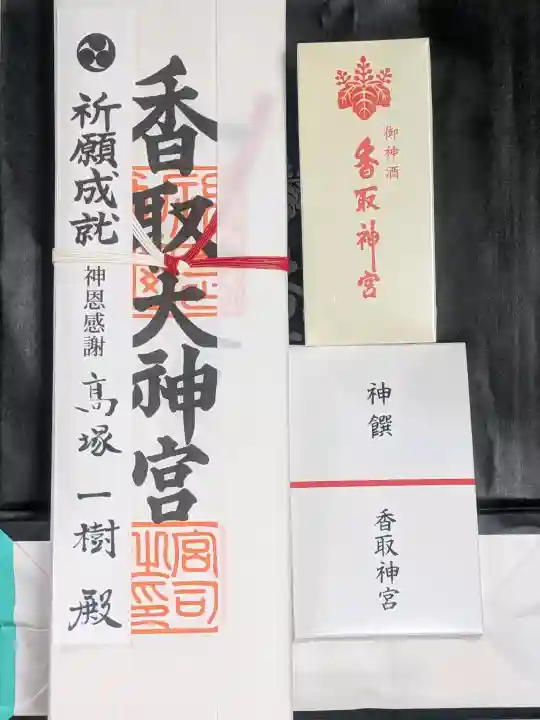 香取大神宮
祈願成就
神恩感謝
高塚一樹殿
宮司之印
御神酒
香取神宮
神饌
香取神宮